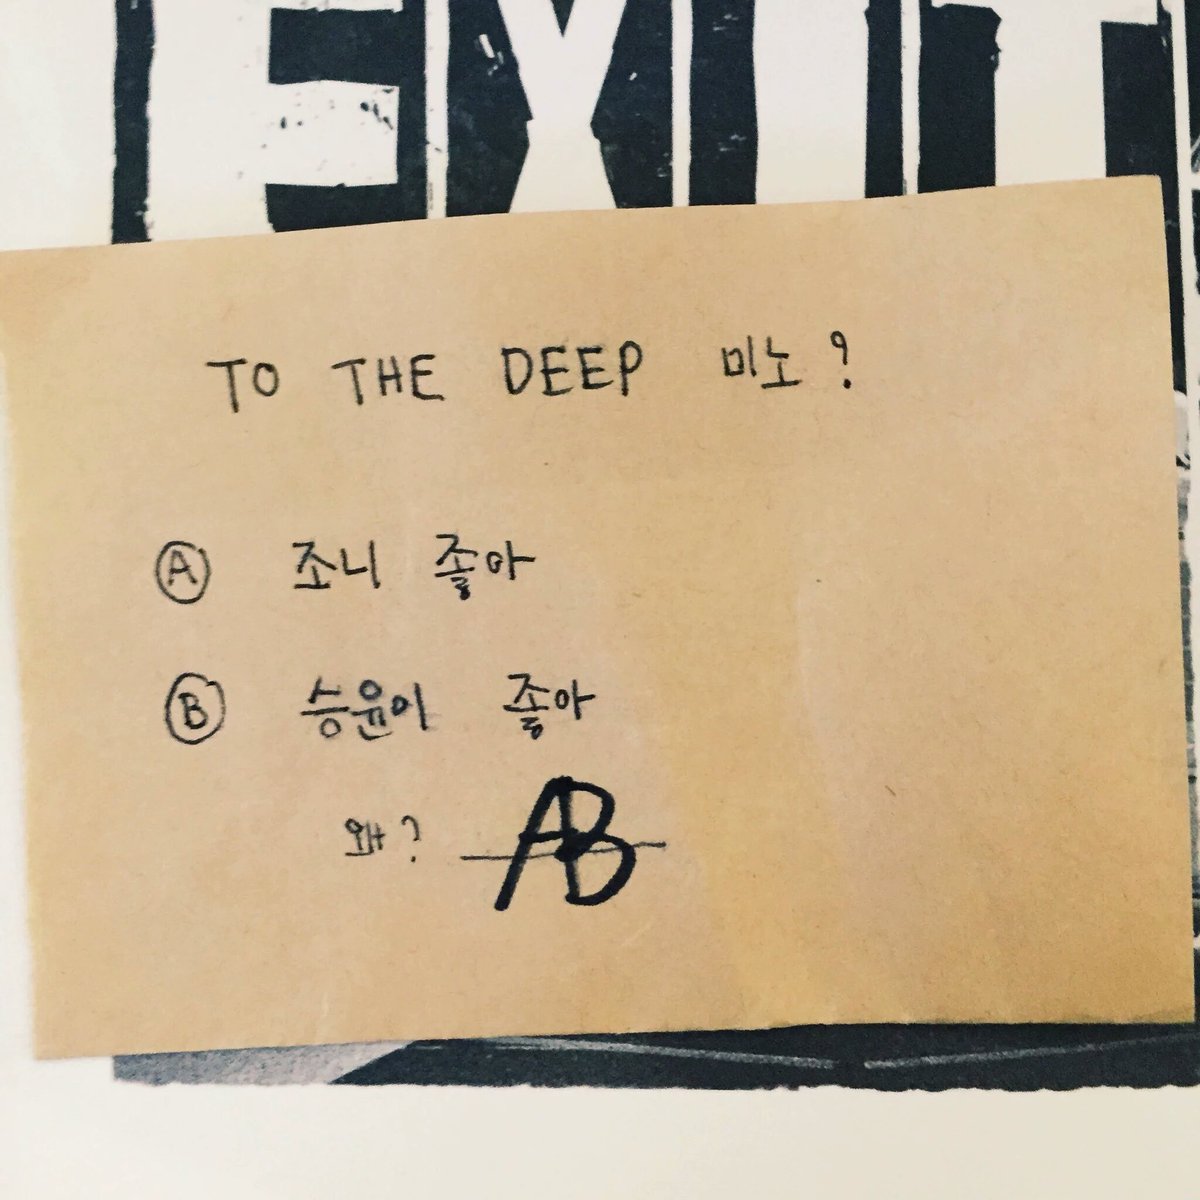 EXIT
TO THE DEEP 미노?
Ⓐ 조니 좋아
Ⓑ 승윤이 좋아
왜? AB